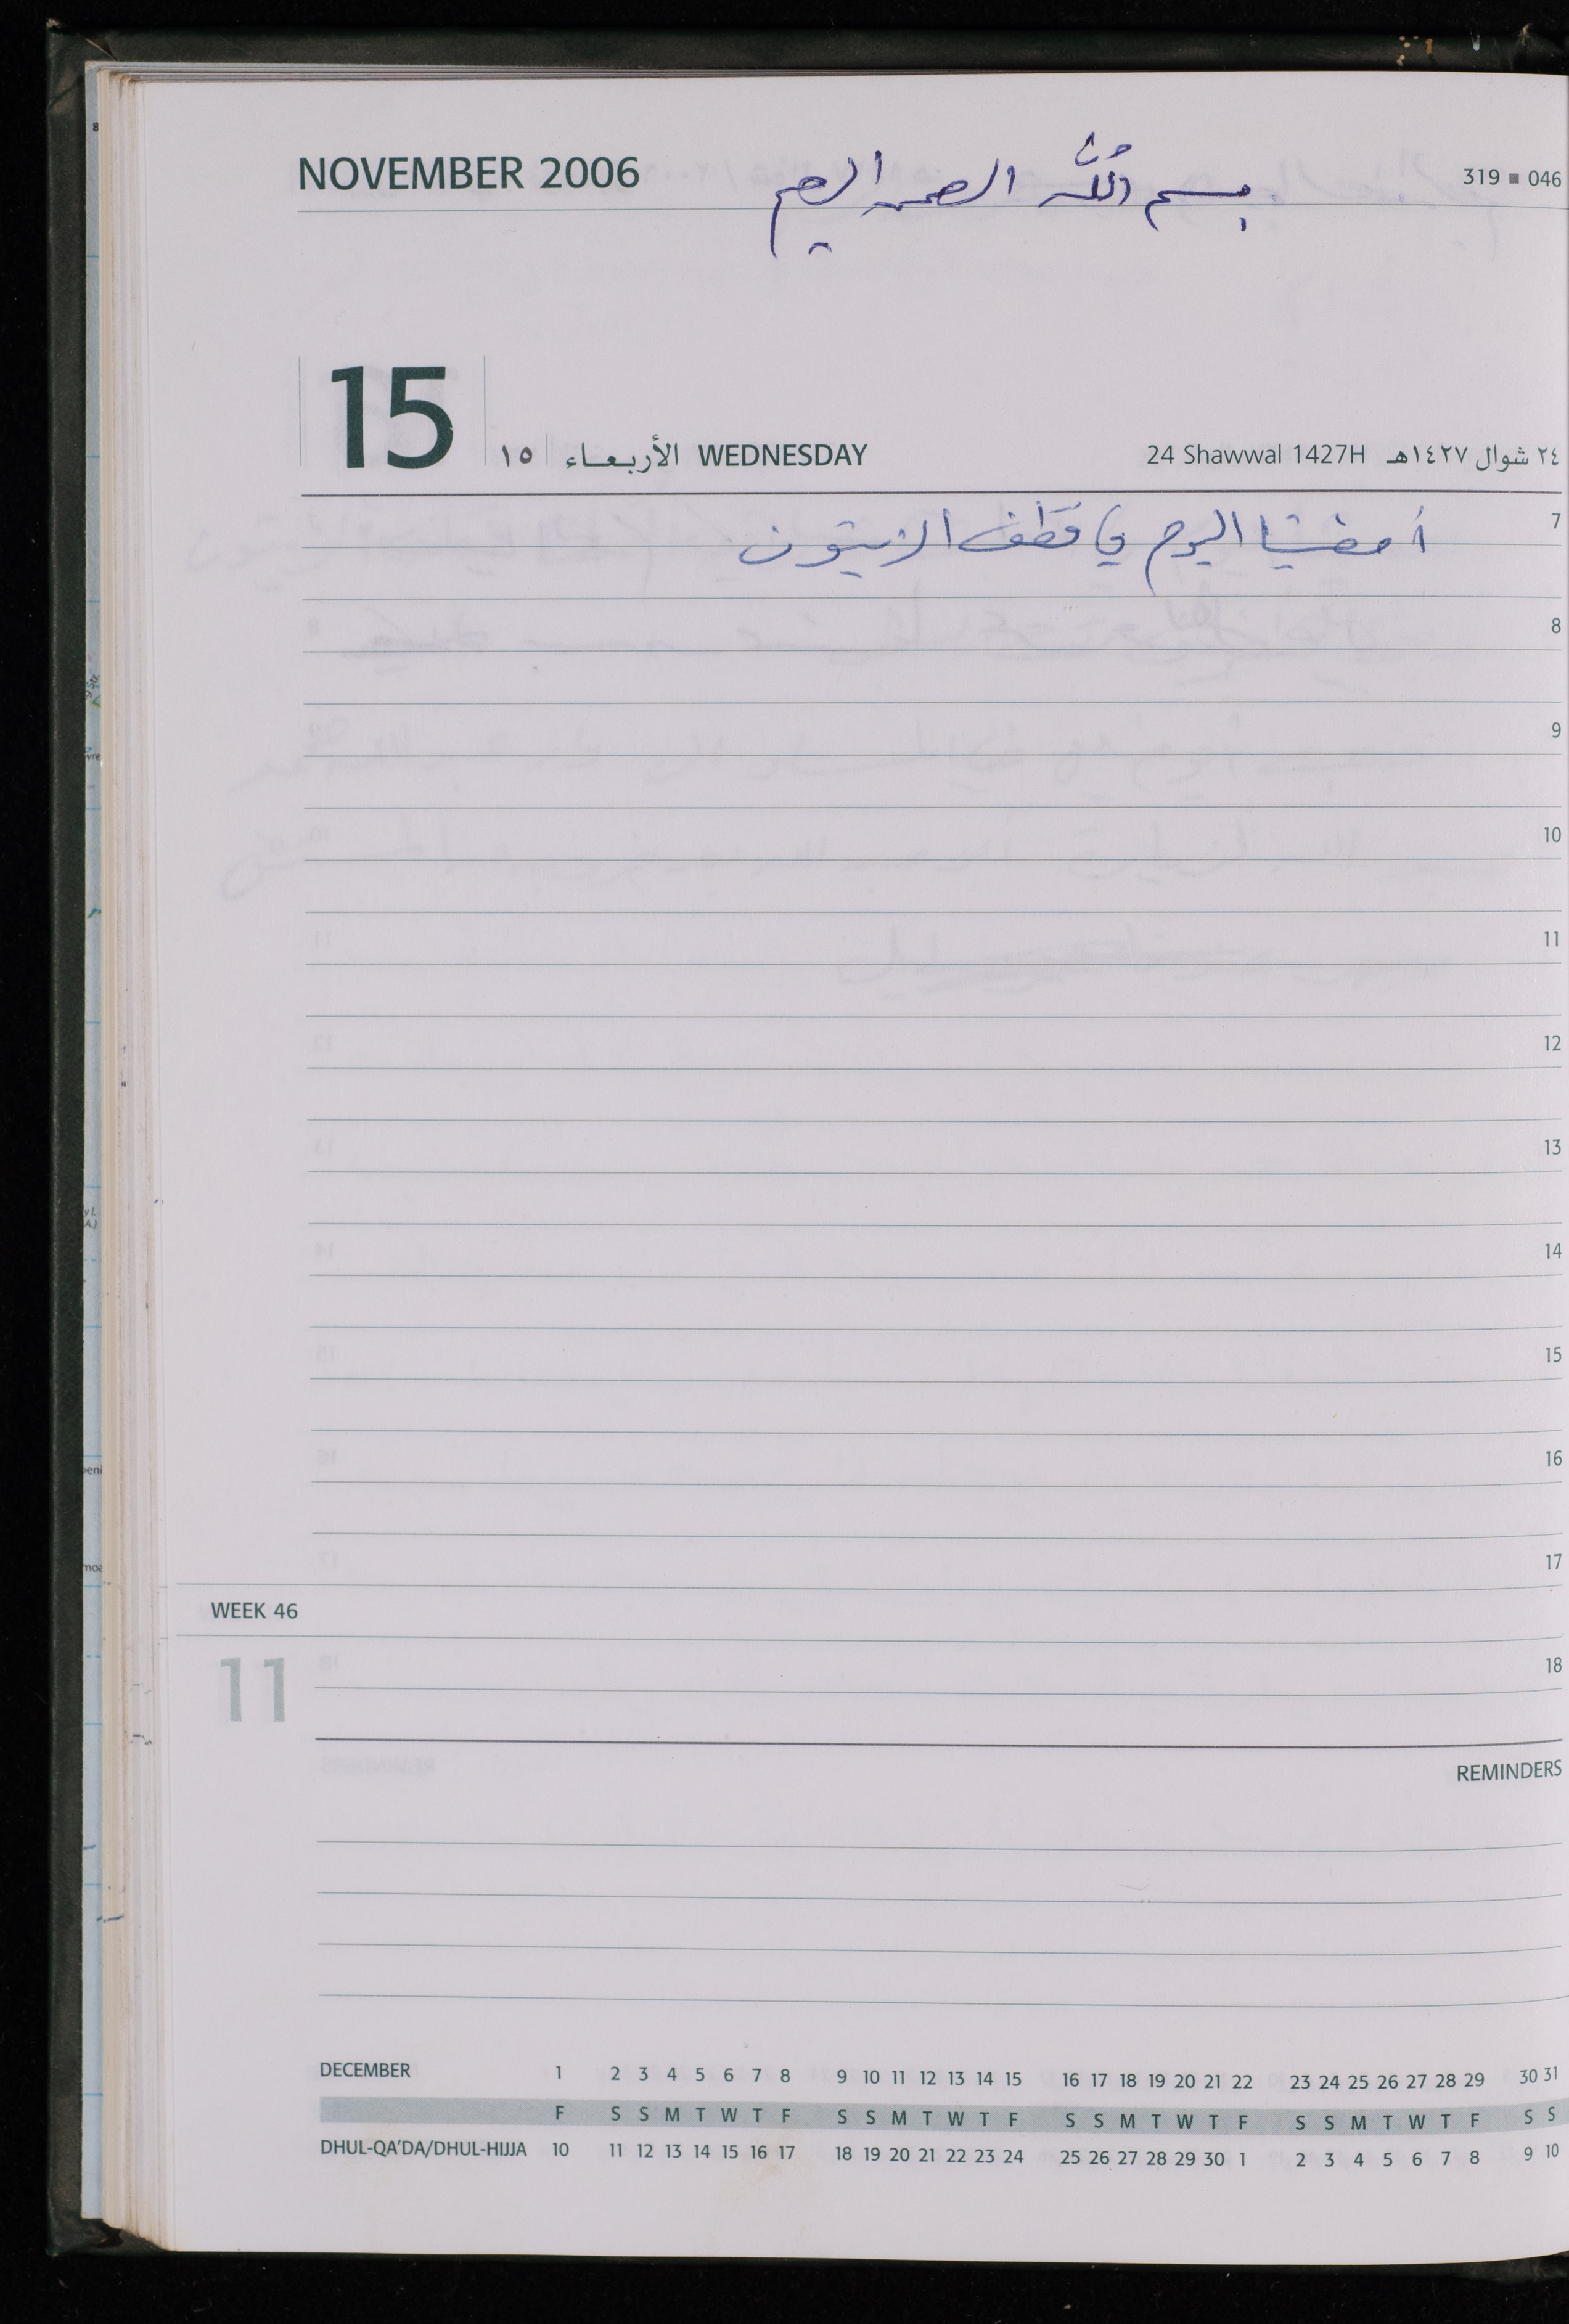 NOVEMBER 2006 بسم الله الرحمن الرحيم 319 ▪ 046
15 | ١٥ | الأربعاء WEDNESDAY 24 Shawwal 1427H ٢٤ شوال ١٤٢٧هـ
أمضينا اليوم في قطف الزيتون 7
8
9
10
11
12
13
14
15
16
17
WEEK 46
11 18
REMINDERS
DECEMBER 1 2 3 4 5 6 7 8 9 10 11 12 13 14 15 16 17 18 19 20 21 22 23 24 25 26 27 28 29 30 31
F S S M T W T F S S M T W T F S S M T W T F S S M T W T F S S
DHUL-QA'DA/DHUL-HIJJA 10 11 12 13 14 15 16 17 18 19 20 21 22 23 24 25 26 27 28 29 30 1 2 3 4 5 6 7 8 9 10